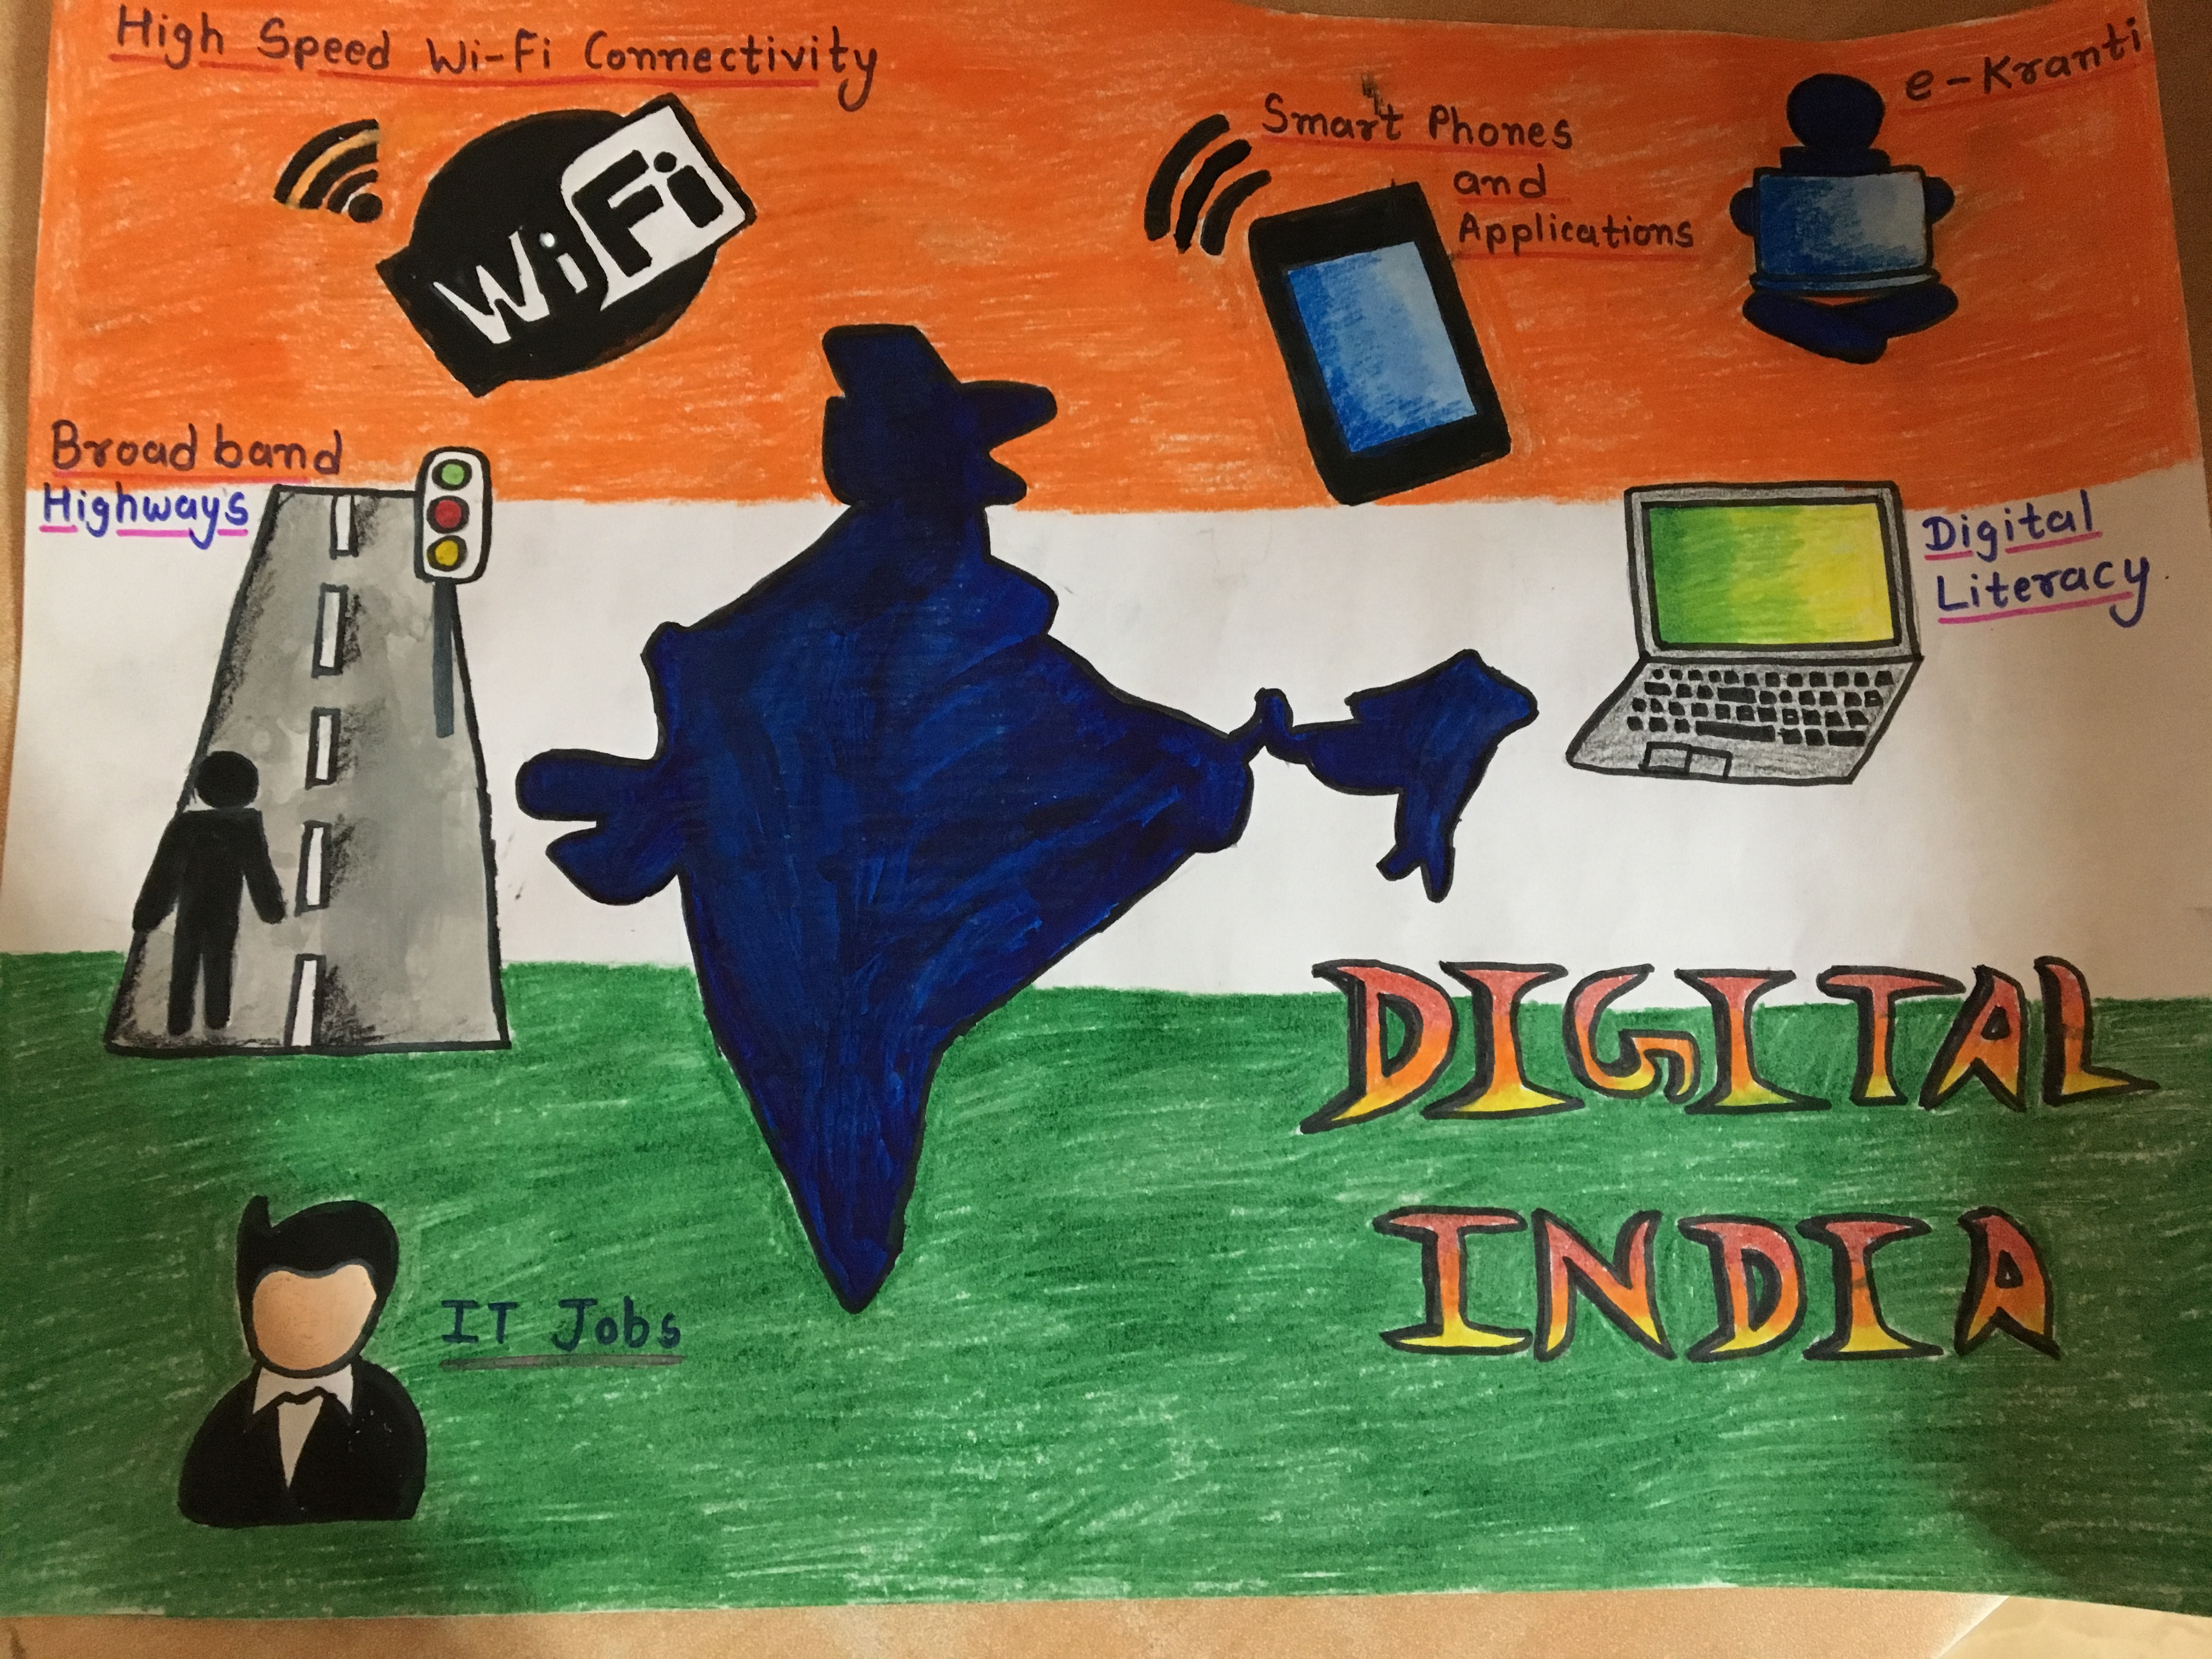 High Speed Wi-Fi Connectivity
WiFi
Smart Phones
and
Applications
e-Kranti
Broad band
Highways
Digital
Literacy
DIGITAL
INDIA
IT Jobs